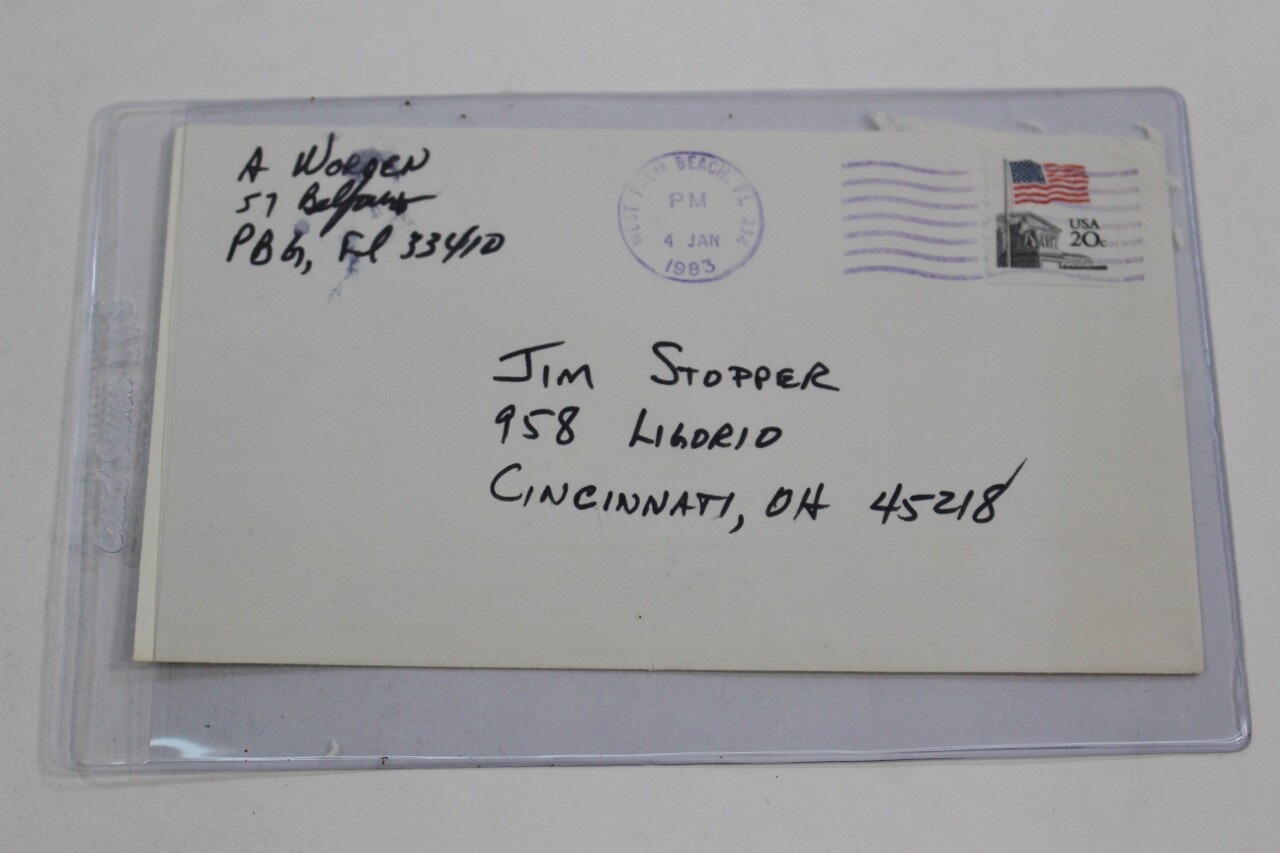 A WORDEN
57 Belfast
PBG, Fl 33410
WEST PALM BEACH, FL 334
PM
4 JAN
1983
USA
20c
JIM STOPPER
958 LIGORIO
CINCINNATI, OH 45218